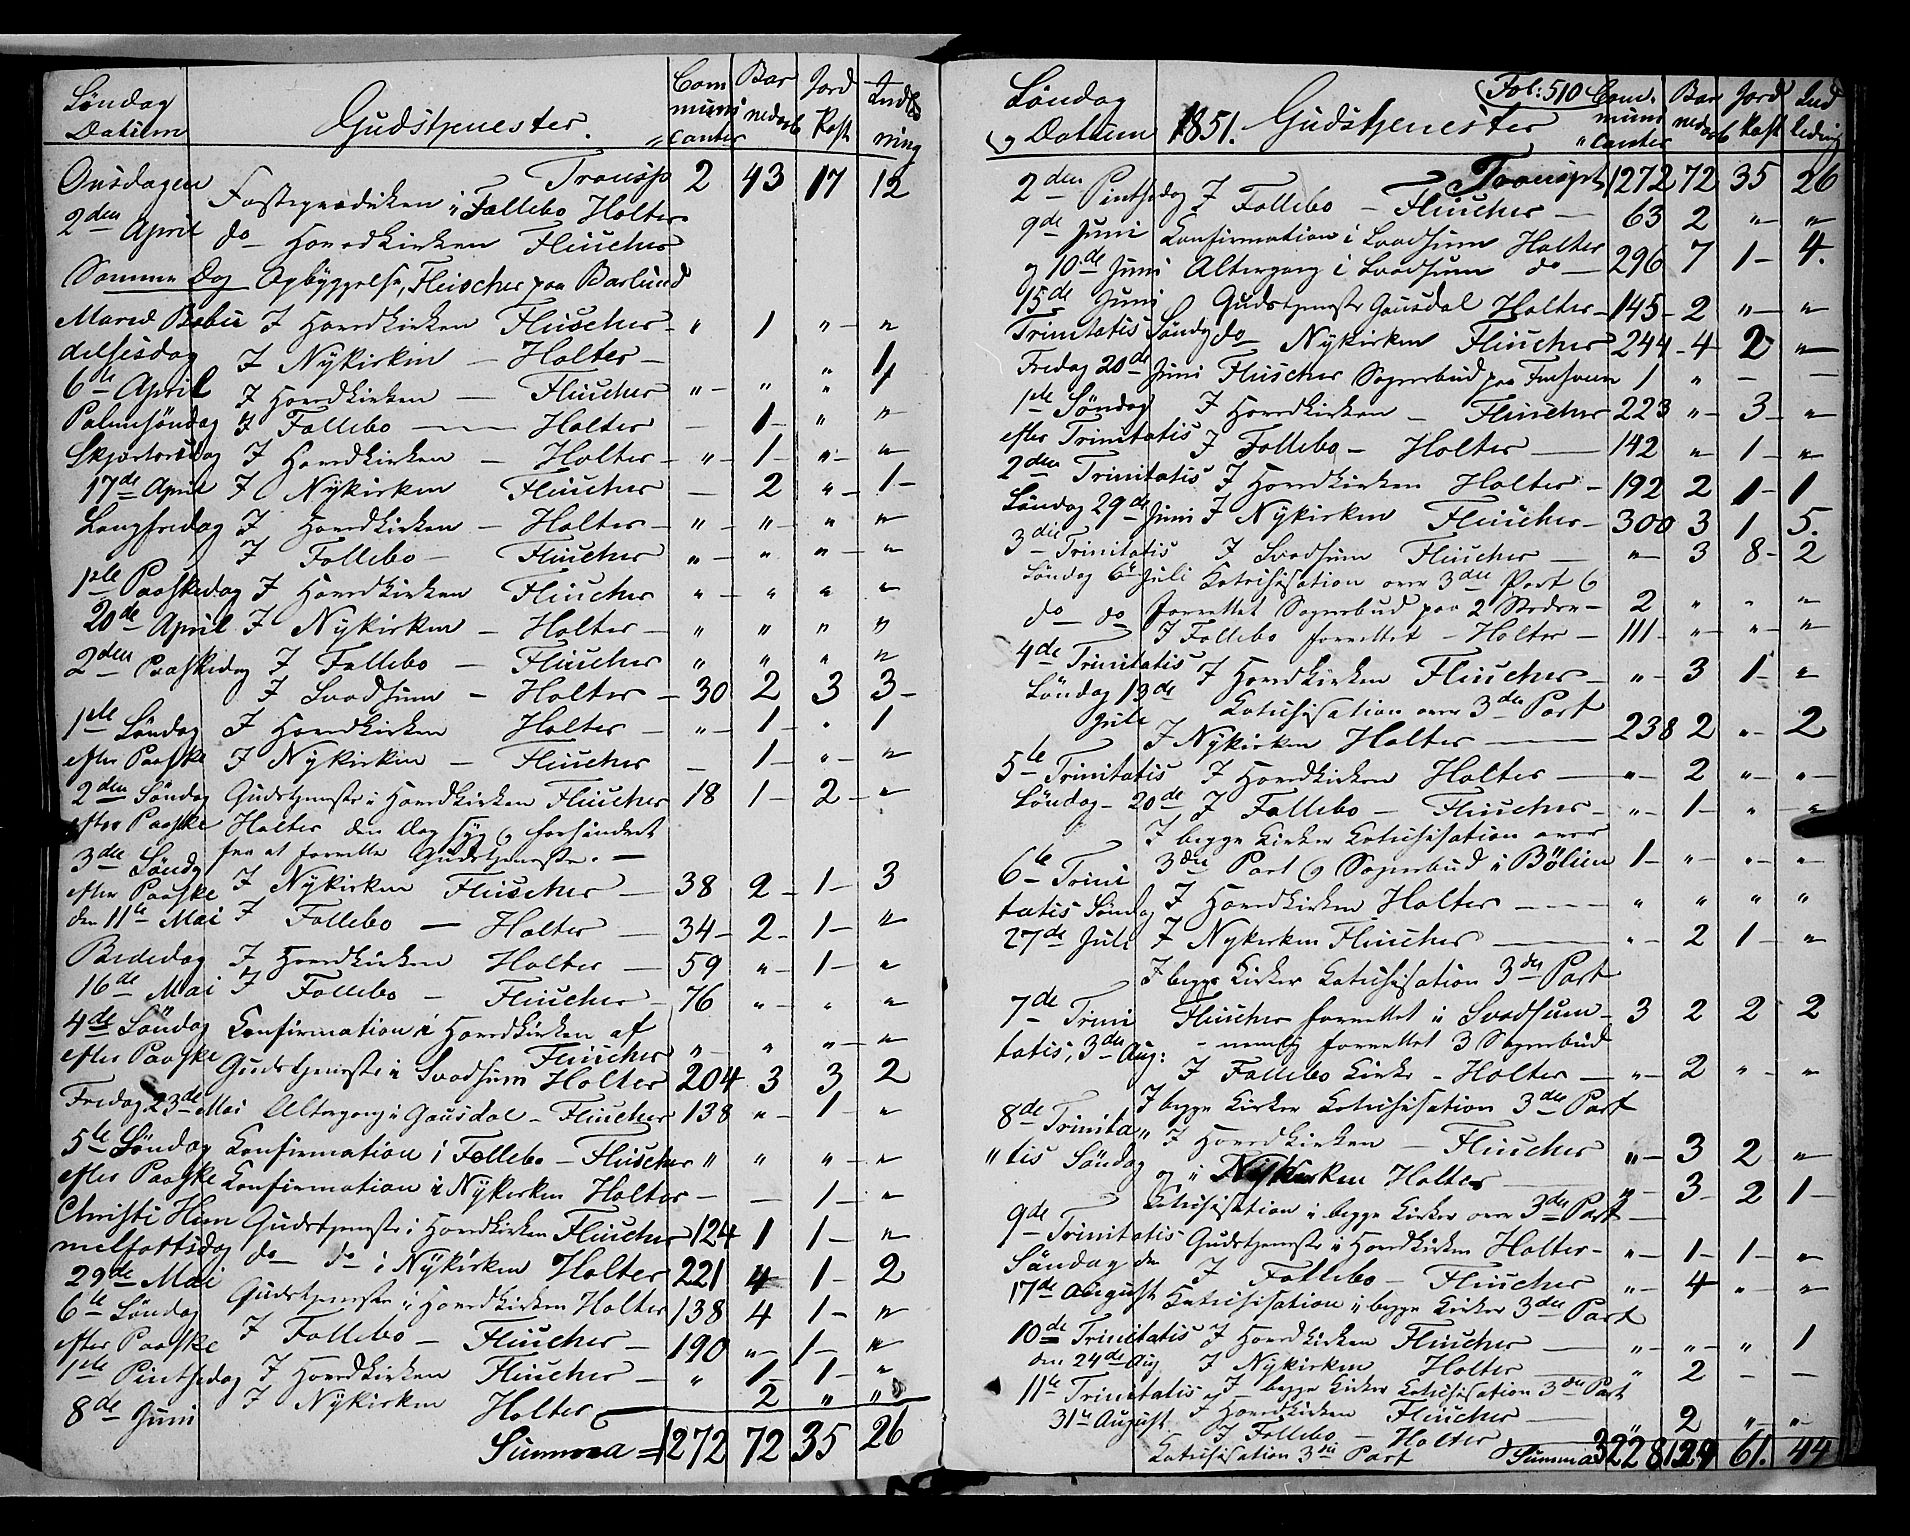 Søndag Datum | Gudstjenester. | Communicanter | Barnedaab | Jordkast | Indledning
Onsdagen Transp 2 43 17 12
2den April Fasteprædiken i Follebo Holter
do Hovedkirken Fleischer
Samme Dag Opbyggelse, Fleischer paa Barlund
Mariæ Bebu I Hovedkirken Fleischer - " 1 " "
delsesdag I Nykirken - Holter - " 1
6de April I Hovedkirken - Fleischer " " " 1
Palmesøndag I Follebo - Holter - 1 " "
Skjærtorsdag I Hovedkirken - Holter - " 1 " "
17de April I Nykirken Fleischer - 2 " 1
Langfredag I Hovedkirken - Holter - " " " "
I Follebo - Fleischer " " " "
1ste Paaskedag I Hovedkirken Fleischer " " " "
20de April I Nykirken - Holter - " " " "
2den Paaskedag I Follebo - Fleischer " " " "
I Svadsum - Holter - 30 2 3 3
1ste Søndag I Hovedkirken Holter - " 1 " 1
efter Paaske I Nykirken - Fleischer - 1 " "
2den Søndag Gudstjeneste i Hovedkirken Fleischer 18 1 2 "
efter Paaske Holter den Dag syg og forhindret
3die Søndg fra at forrette Gudstjeneste. -
efter Paaske I Nykirken Fleischer - 38 2 1 3
den 11te Mai I Follebo - Holter - 34 2 1 "
Bededag I Hovedkirken Holter - 59 " 1 "
16de Mai I Follebo - Fleischer - 76 " " "
4de Søndag Confirmation i Hovedkirken af
efter Paaske Fleischer " " " "
Gudstjeneste i Svadsum Holter 204 3 3 2
Fredag 23de Mai Altergang i Gausdal - Fleischer 138 " 1 "
5te Søndag Confirmation i Follebo - Fleischer " " " "
efter Paaske Confirmation i Nykirken Holter - - 1 "
Christi Him Gudstjeneste i Hovedkirken Fleischer 124 1 1 "
melfartsdag do do i Nykirken Holter 221 4 1 2
29de Mai
6te Søndag Gudstjeneste i Hovedkirken Holter 138 4 1 "
efter Paaske I Follebo - Fleischer - 190 " 1 "
1ste Pintsedag I Hovedkirken Fleischer - " 1 1 "
8de Juni I Nykirken Holter - 2 " "
Summa = 1272 72 35 26
Fol: 510
Søndag og Datum | 1851. Gudstjenester | Communicanter | Barnedaab | Jordkast | Indledning
Transport 1272 72 35 26
2den Pintsedag I Follebo - Fleischer - 63 2 " "
9de Juni Confirmation i Svadsum Holter
og 10de Juni Altergang i Svadsum do - 296 7 1 4.
15de Juni Gudstjeneste Gausdal Holter - 145 2 " "
Trinitatis Søndg do Nykirken Fleischer 244 4 2 "
Fredag 20de Juni Fleischer Sognebud paa 1 " - -
1ste Søndag I Hovedkirken - Fleischer 223 " 3 "
efter Trinitatis I Follebo - Holter - 142 " 1 "
2den Trinitatis I Hovedkirken Holter - 192 2 1 1
Søndag 29de Juni I Nykirken Fleischer - 300 3 1 5.
3die Trinitatis I Svadsum Fleischer - " 3 8 2
Søndag 6te Juli Catechisation over 3die Part og
do do forrettet Sognebud paa 2 Steder - 2 " " "
I Follebo forrettet - Holter - 111 " " "
4de Trinitatis I Hovedkirken Fleischer - " 3 1 "
Søndag 13de Juli Catechisation over 3die Part
I Nykirken Holter - 238 2 " 2
5te Trinitatis I Hovedkirken Holter - " 2 " "
Søndag - 20de I Follebo - Fleischer - " 1 " "
I begge Kirker Catechisation over
6te Trini 3die Part og Sognebud i Bølien 1 " " "
tatis Søndag I Hovedkirken Holter - " " " "
27de Juli I Nykirken Fleischer - " 2 1 "
I begge Kirker Catechisation 3die Part
7de Trini Fleischer forrettet i Svadsum - 3 2 2 2
tatis, 3die Aug: - nemlig forrettet 3 Sognebud
I Follebo Kirke - Holter - " 2 " "
I begge Kirker Catechisation 3die Part
8de Trinita" I Hovedkirken - Fleischer " 3 2 "
"tis Søndag og i Nykirken Holter " 3 2 1
Catechisation i begge Kirker over 3die Part -
9de Trinitatis Gudstjeneste i Hovedkirken Holter - " 1 1 "
Søndag den I Follebo - Fleischer " 4 " "
17de August Catechisation i begge Kirker 3die Part
10de Trinitatis I Hovedkirken Fleischer - " " " 1
den 24de Aug I Nykirken Holter - " 2 - -
11te Trinitatis I begge Kirker Catechisation 3die Part
31te August I Hovedkirken Fleischer -
I Follebo - Holter " 2 " "
Catechisation 3die Part Summa 3228 129 61. 44